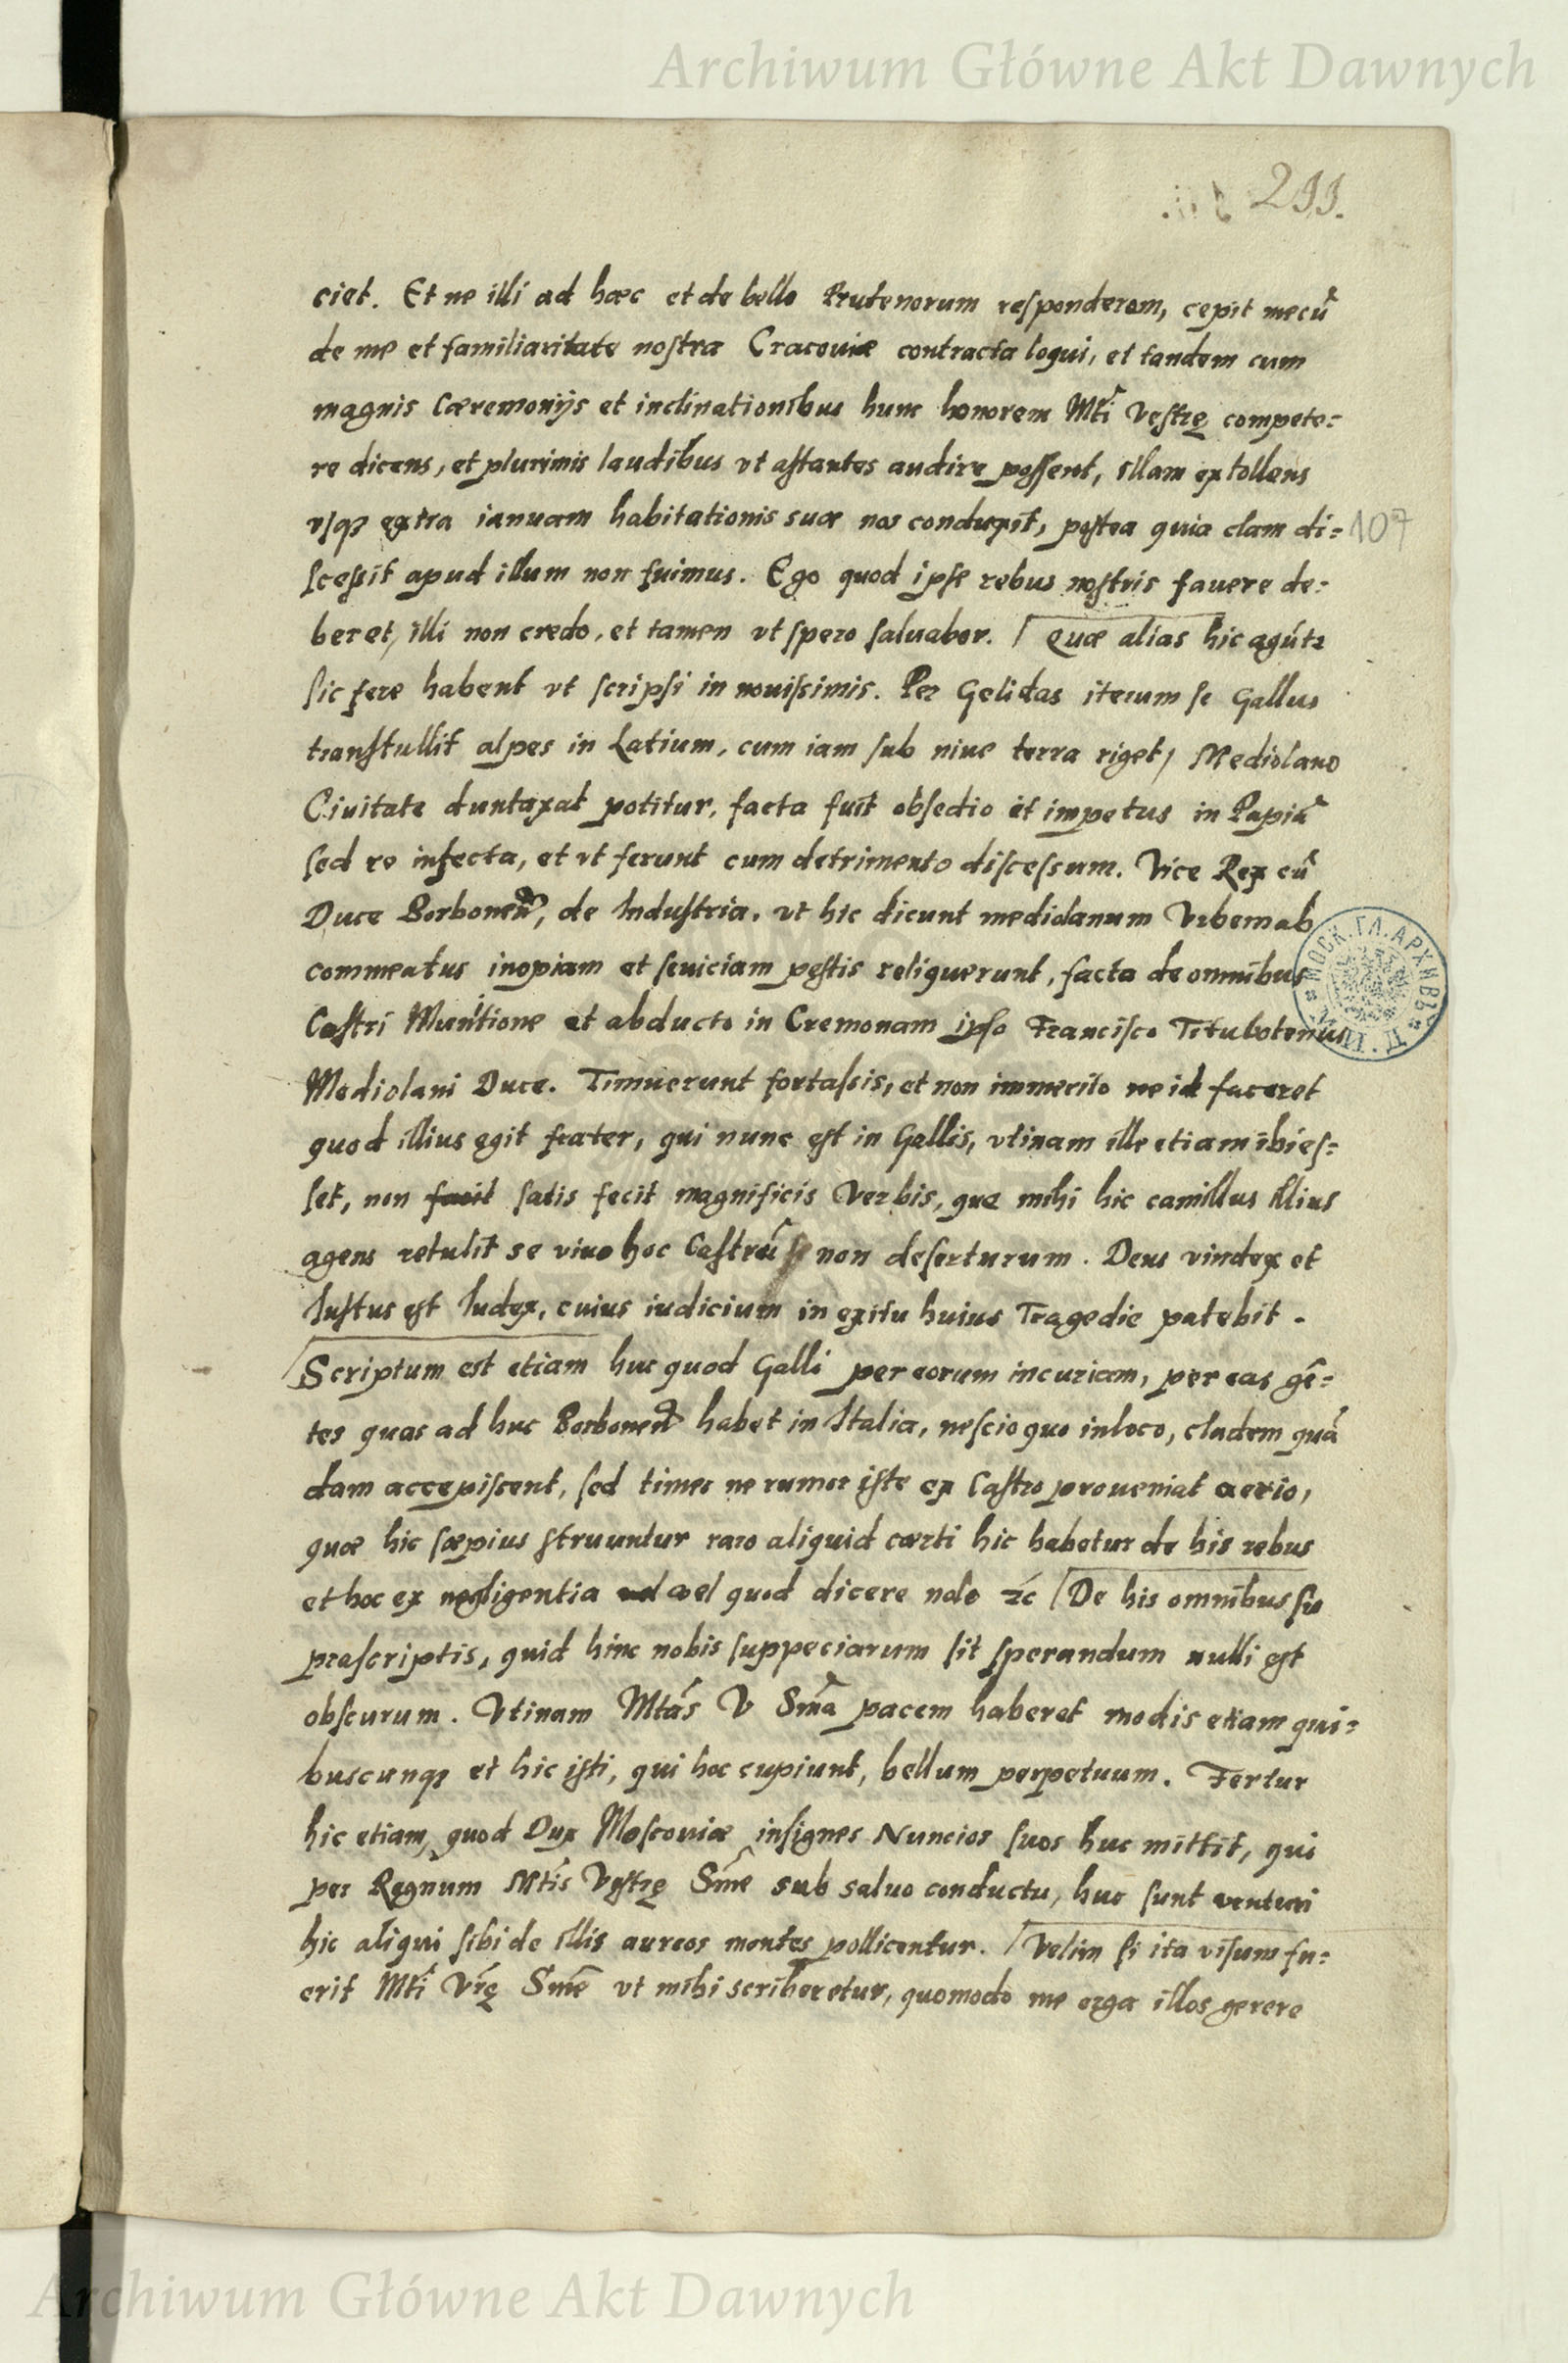 Archiwum Główne Akt Dawnych
211.
ciet. Et ne illi ad hæc et de bello Prutenorum responderem, cepit mecũ
de me et familiaritate nostra Cracouiæ contracta loqui, et tandem cum
magnis Cæremonijs et inclinationibus hunc honorem Mti Vestrę compete=
re dicens, et plurimis laudibus vt astantes audire possent, illam extollens
vsqꝫ extra ianuam habitationis suæ nos conduxit, postea quia clam di=
107
scessit apud illum non fuimus. Ego quod ipse rebus nostris fauere de=
beret, illi non credo, et tamen vt spero saluabor. Quæ alias hic agũtr
sic fere habent vt scripsi in nouissimis. Per Gelidas iterum se Gallus
transtullit alpes in Latium, cum iam sub niue terra riget, Mediolano
Ciuitate duntaxat potitur, facta fuit obsedio et impetus in Papiã
sed re infecta, et vt ferunt cum detrimento discessum. Vice Rex cũ
Duce Borbonen, de Industria, vt hic dicunt mediolanum Vrbem ab
commeatus inopiam et seuiciam pestis reliquerunt, facta de omnibus
Castri Munitione et abducto in Cremonam ipso Francisco Titulotenus
Mediolani Duce. Timuerunt fortassis, et non immerito ne id faceret
quod illius egit frater, qui nunc est in Gallis, vtinam ille etiam ibi es=
set, non facit satis fecit magnificis Verbis, que mihi hic camillus illius
agens retulit se viuo hoc Castrũ non deserturum. Deus vindex et
Iustus est Iudex, cuius iudicium in exitu huius Tragedie patebit.
Scriptum est etiam huc quod Galli per eorum incuriam, per eas gẽ=
tes quas ad huc Borbonen habet in Italia, nescio quo in loco, cladem quã
dam accepiscent, sed timeo ne rumor iste ex Castro proueniat aerio,
quæ hic sæpius struuntur raro aliquid cærti hic habetur de his rebus
et hoc ex negligentia vel quod dicere nolo ꝛc De his omnibus su
prascriptis, quid hinc nobis suppeciarum sit sperandum nulli est
obscurum. Vtinam Mtas V Sma pacem haberet modis etiam qui=
buscunqꝫ et hic isti, qui hoc cupiunt, bellum perpetuum. Fertur
hic etiam, quod Dux Moscouiæ insignes Nuncios suos huc mittit, qui
per Regnum Mtis Vestrę Sme sub saluo conductu, huc sunt venturi
hic aliqui sibi de illis aureos montes pollicentur. Velim si ita visum fu=
erit Mti Vrę Sme vt mihi scriberetur, quomodo me erga illos gerere
МОСК. ГЛ. АРХИВЪ
Archiwum Główne Akt Dawnych